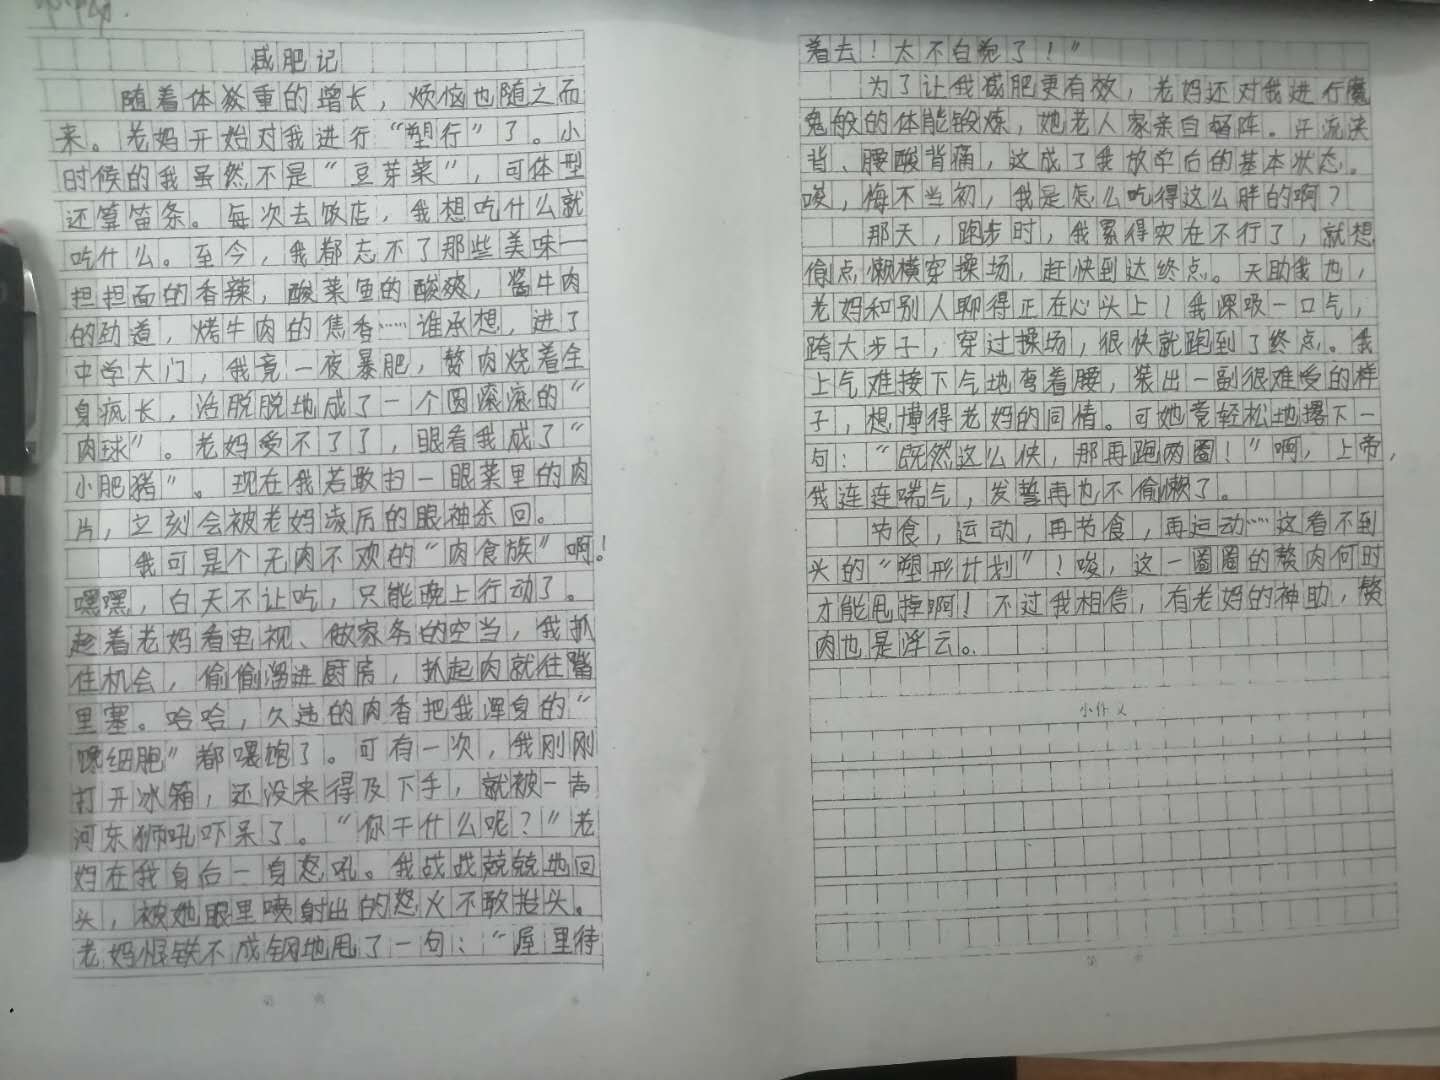 减肥记
随着体重的增长，烦恼也随之而
来。老妈开始对我进行“塑行”了。小
时候的我虽然不是“豆芽菜”，可体型
还算苗条。每次去饭店，我想吃什么就
吃什么。至今，我都忘不了那些美味—
担担面的香辣，酸菜鱼的酸爽，酱牛肉
的劲道，烤牛肉的焦香……谁承想，进了
中学大门，我竟一夜暴肥，赘肉绕着全
身疯长，活脱脱地成了一个圆滚滚的“
肉球”。老妈受不了了，眼看我成了“
小肥猪”。现在我若敢扫一眼菜里的肉
片，立刻会被老妈凌厉的眼神杀回。
我可是个无肉不欢的“肉食族”啊！
嘿嘿，白天不让吃，只能晚上行动了。
趁着老妈看电视、做家务的空当，我抓
住机会，偷偷溜进厨房，抓起肉就往嘴
里塞。哈哈，久违的肉香把我浑身的“
馋细胞”都喂饱了。可有一次，我刚刚
打开冰箱，还没来得及下手，就被一声
河东狮吼吓呆了。“你干什么呢？”老
妈在我身后一身怒吼。我战战兢兢地回
头，被她眼里喷射出的怒火不敢抬头。
老妈恨铁不成钢地甩了一句：“屋里待
着去！太不自觉了！”
为了让我减肥更有效，老妈还对我进行魔
鬼般的体能锻炼，她老人家亲自督阵。汗流浃
背、腰酸背痛，这成了我放学后的基本状态。
唉，悔不当初，我是怎么吃得这么胖的啊？
那天，跑步时，我累得实在不行了，就想
偷点懒横穿操场，赶快到达终点。天助我也，
老妈和别人聊得正在心头上！我深吸一口气，
跨大步子，穿过操场，很快就跑到了终点。我
上气难接下气地弯着腰，装出一副很难受的样
子，想博得老妈的同情。可她竟轻松地撂下一
句：“既然这么快，那再跑两圈！”啊，上帝，
我连连喘气，发誓再也不偷懒了。
节食，运动，再节食，再运动……这看不到
头的“塑形计划”！唉，这一圈圈的赘肉何时
才能甩掉啊！不过我相信，有老妈的神助，赘
肉也是浮云。
小作文
第 页
第 页